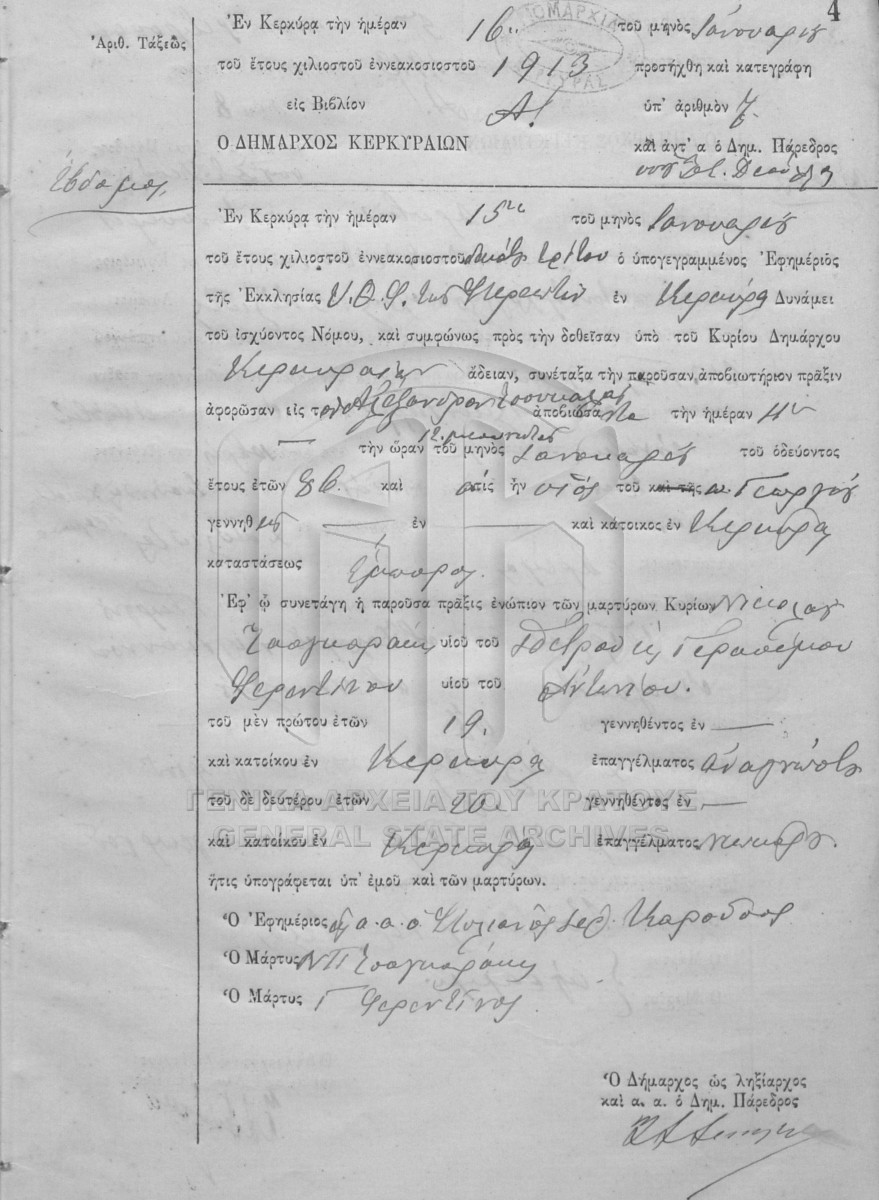 4
Ἀριθ. Τάξεως
Ἐν Κερκύρᾳ τὴν ἡμέραν 16 τοῦ μηνὸς Ἰανουαρίου
τοῦ ἔτους χιλιοστοῦ ἐννεακοσιοστοῦ 1913 προσήχθη καὶ κατεγράφη
εἰς Βιβλίον Α! ὑπ' ἀριθμὸν 7
Ο ΔΗΜΑΡΧΟΣ ΚΕΡΚΥΡΑΙΩΝ καὶ ἀντ' α ὁ Δημ. Πάρεδρος
Ἐν Κερκύρᾳ τὴν ἡμέραν 15 τοῦ μηνὸς Ἰανουαρίου
τοῦ ἔτους χιλιοστοῦ ἐννεακοσιοστοῦ δεκάτου τρίτου ὁ ὑπογεγραμμένος Ἐφημέριος
τῆς Ἐκκλησίας Υ. Θ. ἐν Κερκύρᾳ Δυνάμει
τοῦ ἰσχύοντος Νόμου, καὶ συμφώνως πρὸς τὴν δοθεῖσαν ὑπὸ τοῦ Κυρίου Δημάρχου
Κερκυραίων ἄδειαν, συνέταξα τὴν παροῦσαν ἀποβιωτήριον πρᾶξιν
ἀφορῶσαν εἰς τὸν Ἀλέξανδρον ἀποβιώσαντα τὴν ἡμέραν
— τὴν ὥραν 12 τοῦ μηνὸς Ἰανουαρίου τοῦ ὁδεύοντος
ἔτους ἐτῶν 82 καὶ ὅστις ἦν υἱὸς τοῦ καὶ τῆς Γεωργίου
γεννηθεὶς — ἐν — καὶ κάτοικος ἐν Κερκύρᾳ
καταστάσεως ἔμπορος.
Ἐφ' ᾧ συνετάγη ἡ παροῦσα πρᾶξις ἐνώπιον τῶν μαρτύρων Κυρίων Νικολάου
Τσαγκαράκη υἱοῦ τοῦ Πέτρου κ Γερασίμου
Φερεντίνου υἱοῦ τοῦ Ἀντωνίου.
τοῦ μὲν πρώτου ἐτῶν 19. γεννηθέντος ἐν —
καὶ κατοίκου ἐν Κερκύρᾳ ἐπαγγέλματος ἀναγνώστου
τοῦ δὲ δευτέρου ἐτῶν 20 γεννηθέντος ἐν —
καὶ κατοίκου ἐν Κερκύρᾳ ἐπαγγέλματος
ἥτις ὑπογράφεται ὑπ' ἐμοῦ καὶ τῶν μαρτύρων.
Ὁ Ἐφημέριος
Ὁ Μάρτυς Ν Π Τσαγκαράκης
Ὁ Μάρτυς Γ Φερεντίνος
Ὁ Δήμαρχος ὡς ληξίαρχος
καὶ α. α. ὁ Δημ. Πάρεδρος
ΓΕΝΙΚΑ ΑΡΧΕΙΑ ΤΟΥ ΚΡΑΤΟΥΣ
GENERAL STATE ARCHIVES